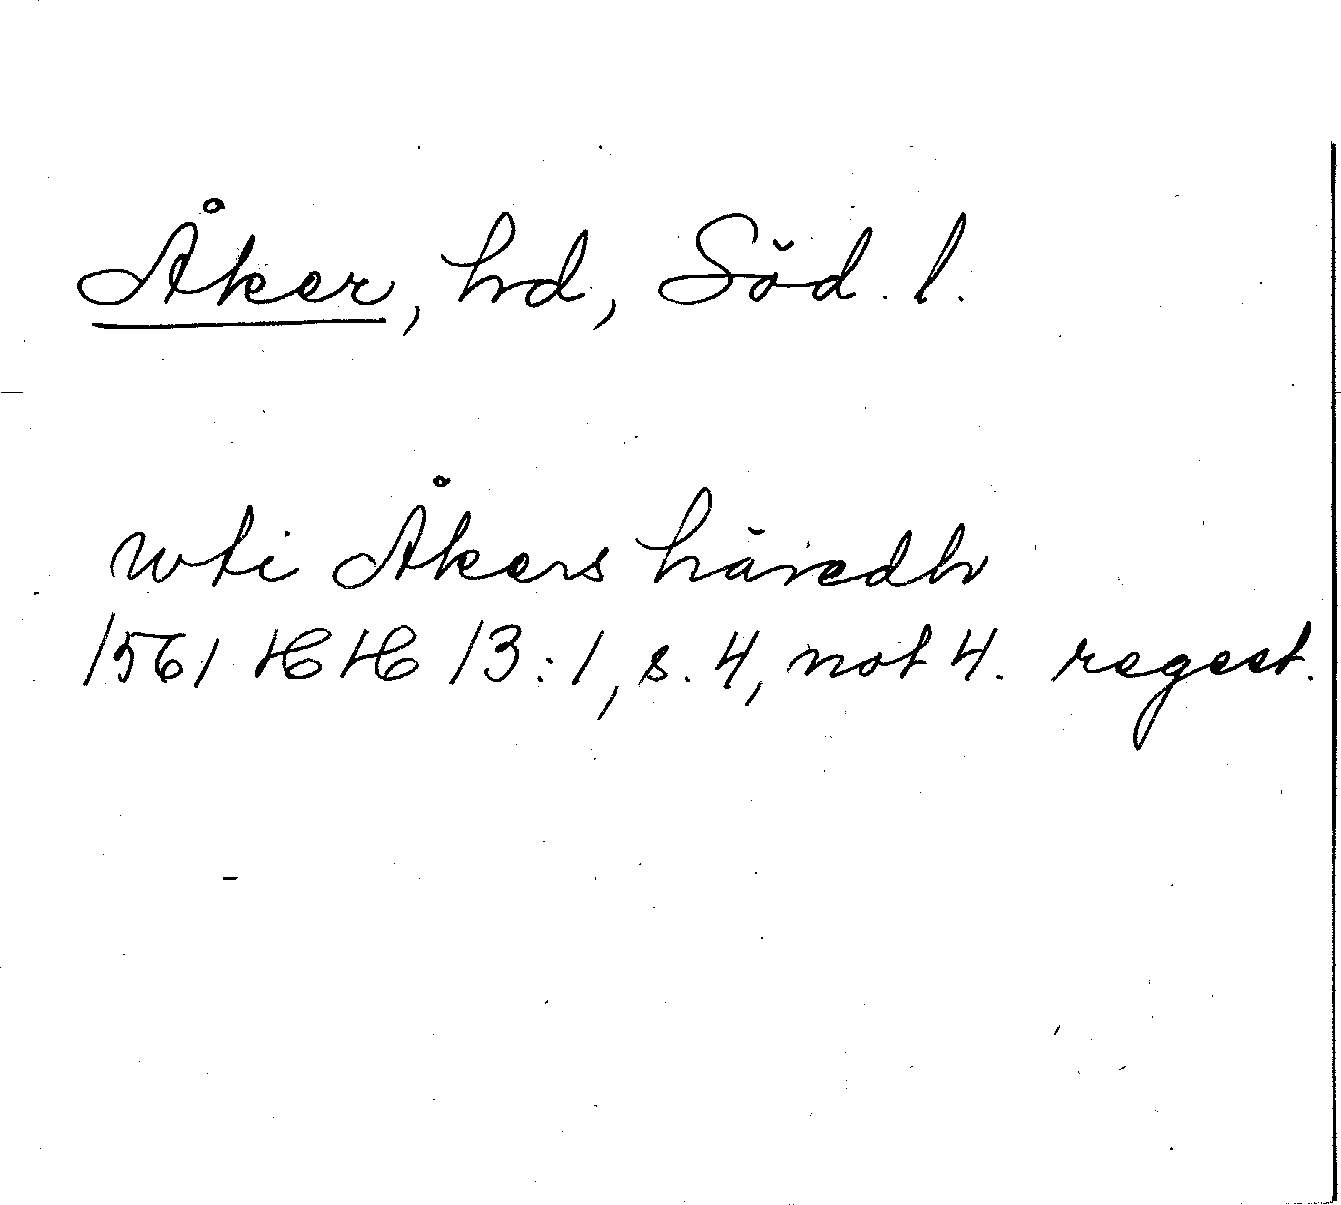 Åker, hd, Söd. l.
wti Åkers häredh
1561 HH 13:1, s. 4, not 4. regest.